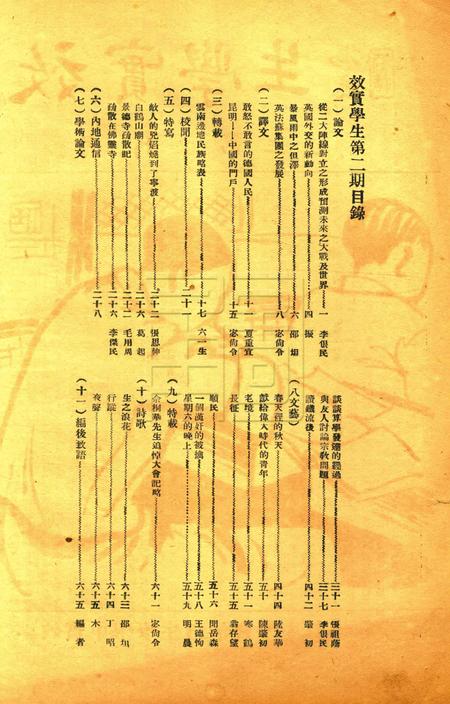 效實學生第二期目錄
(一)論文
從二大陣線對立之形成預測未來之大戰及世界 一 李俍民
英國外交的新動向 四 振
暴風雨中之但澤 六 邵坦
英法蘇集團之發展 八 宓尙令
(二)譯文
敢怒不敢言的德國人民 十一 夏重宜
昆明——中國的門戶 十五 宓尙令
(三)轉載
雲南邊地民族略表 十七 六一生
(四)校聞 二十一
(五)特寫
敵人的兇焰燒到了寧波 二十二 張思仲
白鶴山廟 二十六 葛起
景德寺函散記 二十二 毛用周
函散在佛靈寺 二十六 李傑民
(六)內地通信 二十八
(七)學術論文
談談算學發達的經過 三十一 張祖蔭
與友人討論宗敎問題 三十七 李俍民
讀鐵流後 四十二 肇初
(八文藝)
春天裡的秋天 四十四 陸友華
獻給偉人時代的青年 五十 陳肇初
老境 五十一 寒鶴
長征 五十五 翁存望
順民 五十六 開岳森
一個漢奸的被擒 五十八 王德恂
星期六的晚上 五十九 明晨
(九)特載
余桐華先生追悼大會記略 六十一 宓尙令
(十)詩歌
生之浪花 六十三 邵坦
行蹤 六十四 丁昭
夜聲 六十五 木
(十一)編後放語 六十五 編者
效實學生